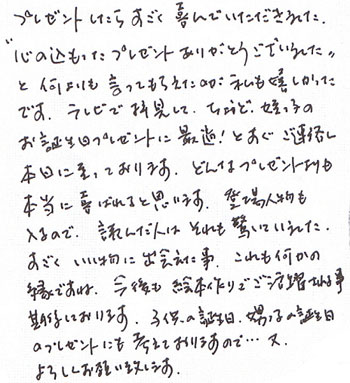 プレゼントしたらすごく喜んでいただきました。
"心の込もったプレゼントありがとうございました"
と何よりも言ってもらえたのが私も嬉しかった
です。テレビで拝見して、ちょうど、姪っ子の
お誕生日プレゼントに最適!とすぐご連絡し
本日に至っております。どんなプレゼントよりも
本当に喜ばれると思います。登場人物も
入るので、読んだ人はそれも驚いていました。
すごくいい物に出会えた事、これも何かの
縁ですね。今後も絵本作りでご活躍される事
期待しております。子供の誕生日、甥っ子の誕生日
のプレゼントにも考えておりますので…又、
よろしくお願い致します。